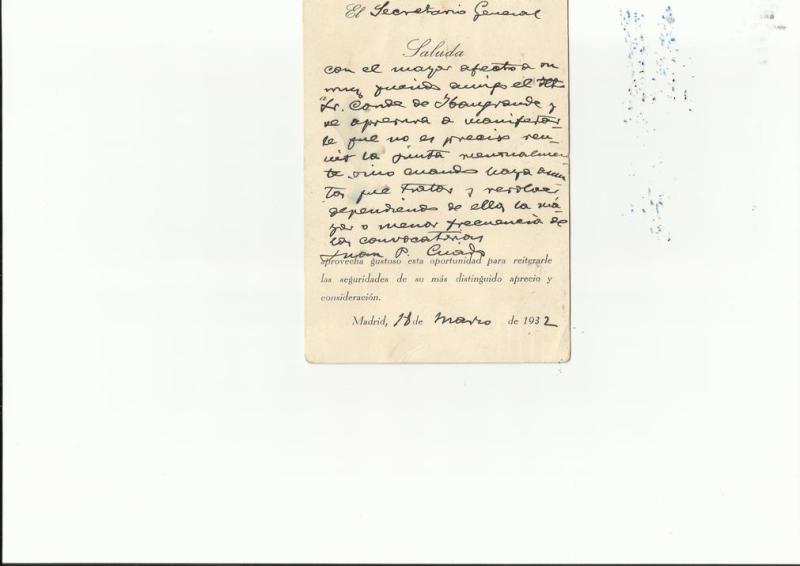 El Secretario General
Saluda
con el mayor afecto a su
muy querido amigo el
Sr. Conde de y
se apresura a manifestar
le que no es preciso reu-
nir la Junta mensualmen
te sino cuando haya asun
tos que tratar y resolver
dependiendo de ellos la ma
yor o menor frecuencia de
las convocatorias
Juan P.
aprovecha gustoso esta oportunidad para reiterarle
las seguridades de su más distinguido aprecio y
consideración.
Madrid, 18 de Marzo de 1932